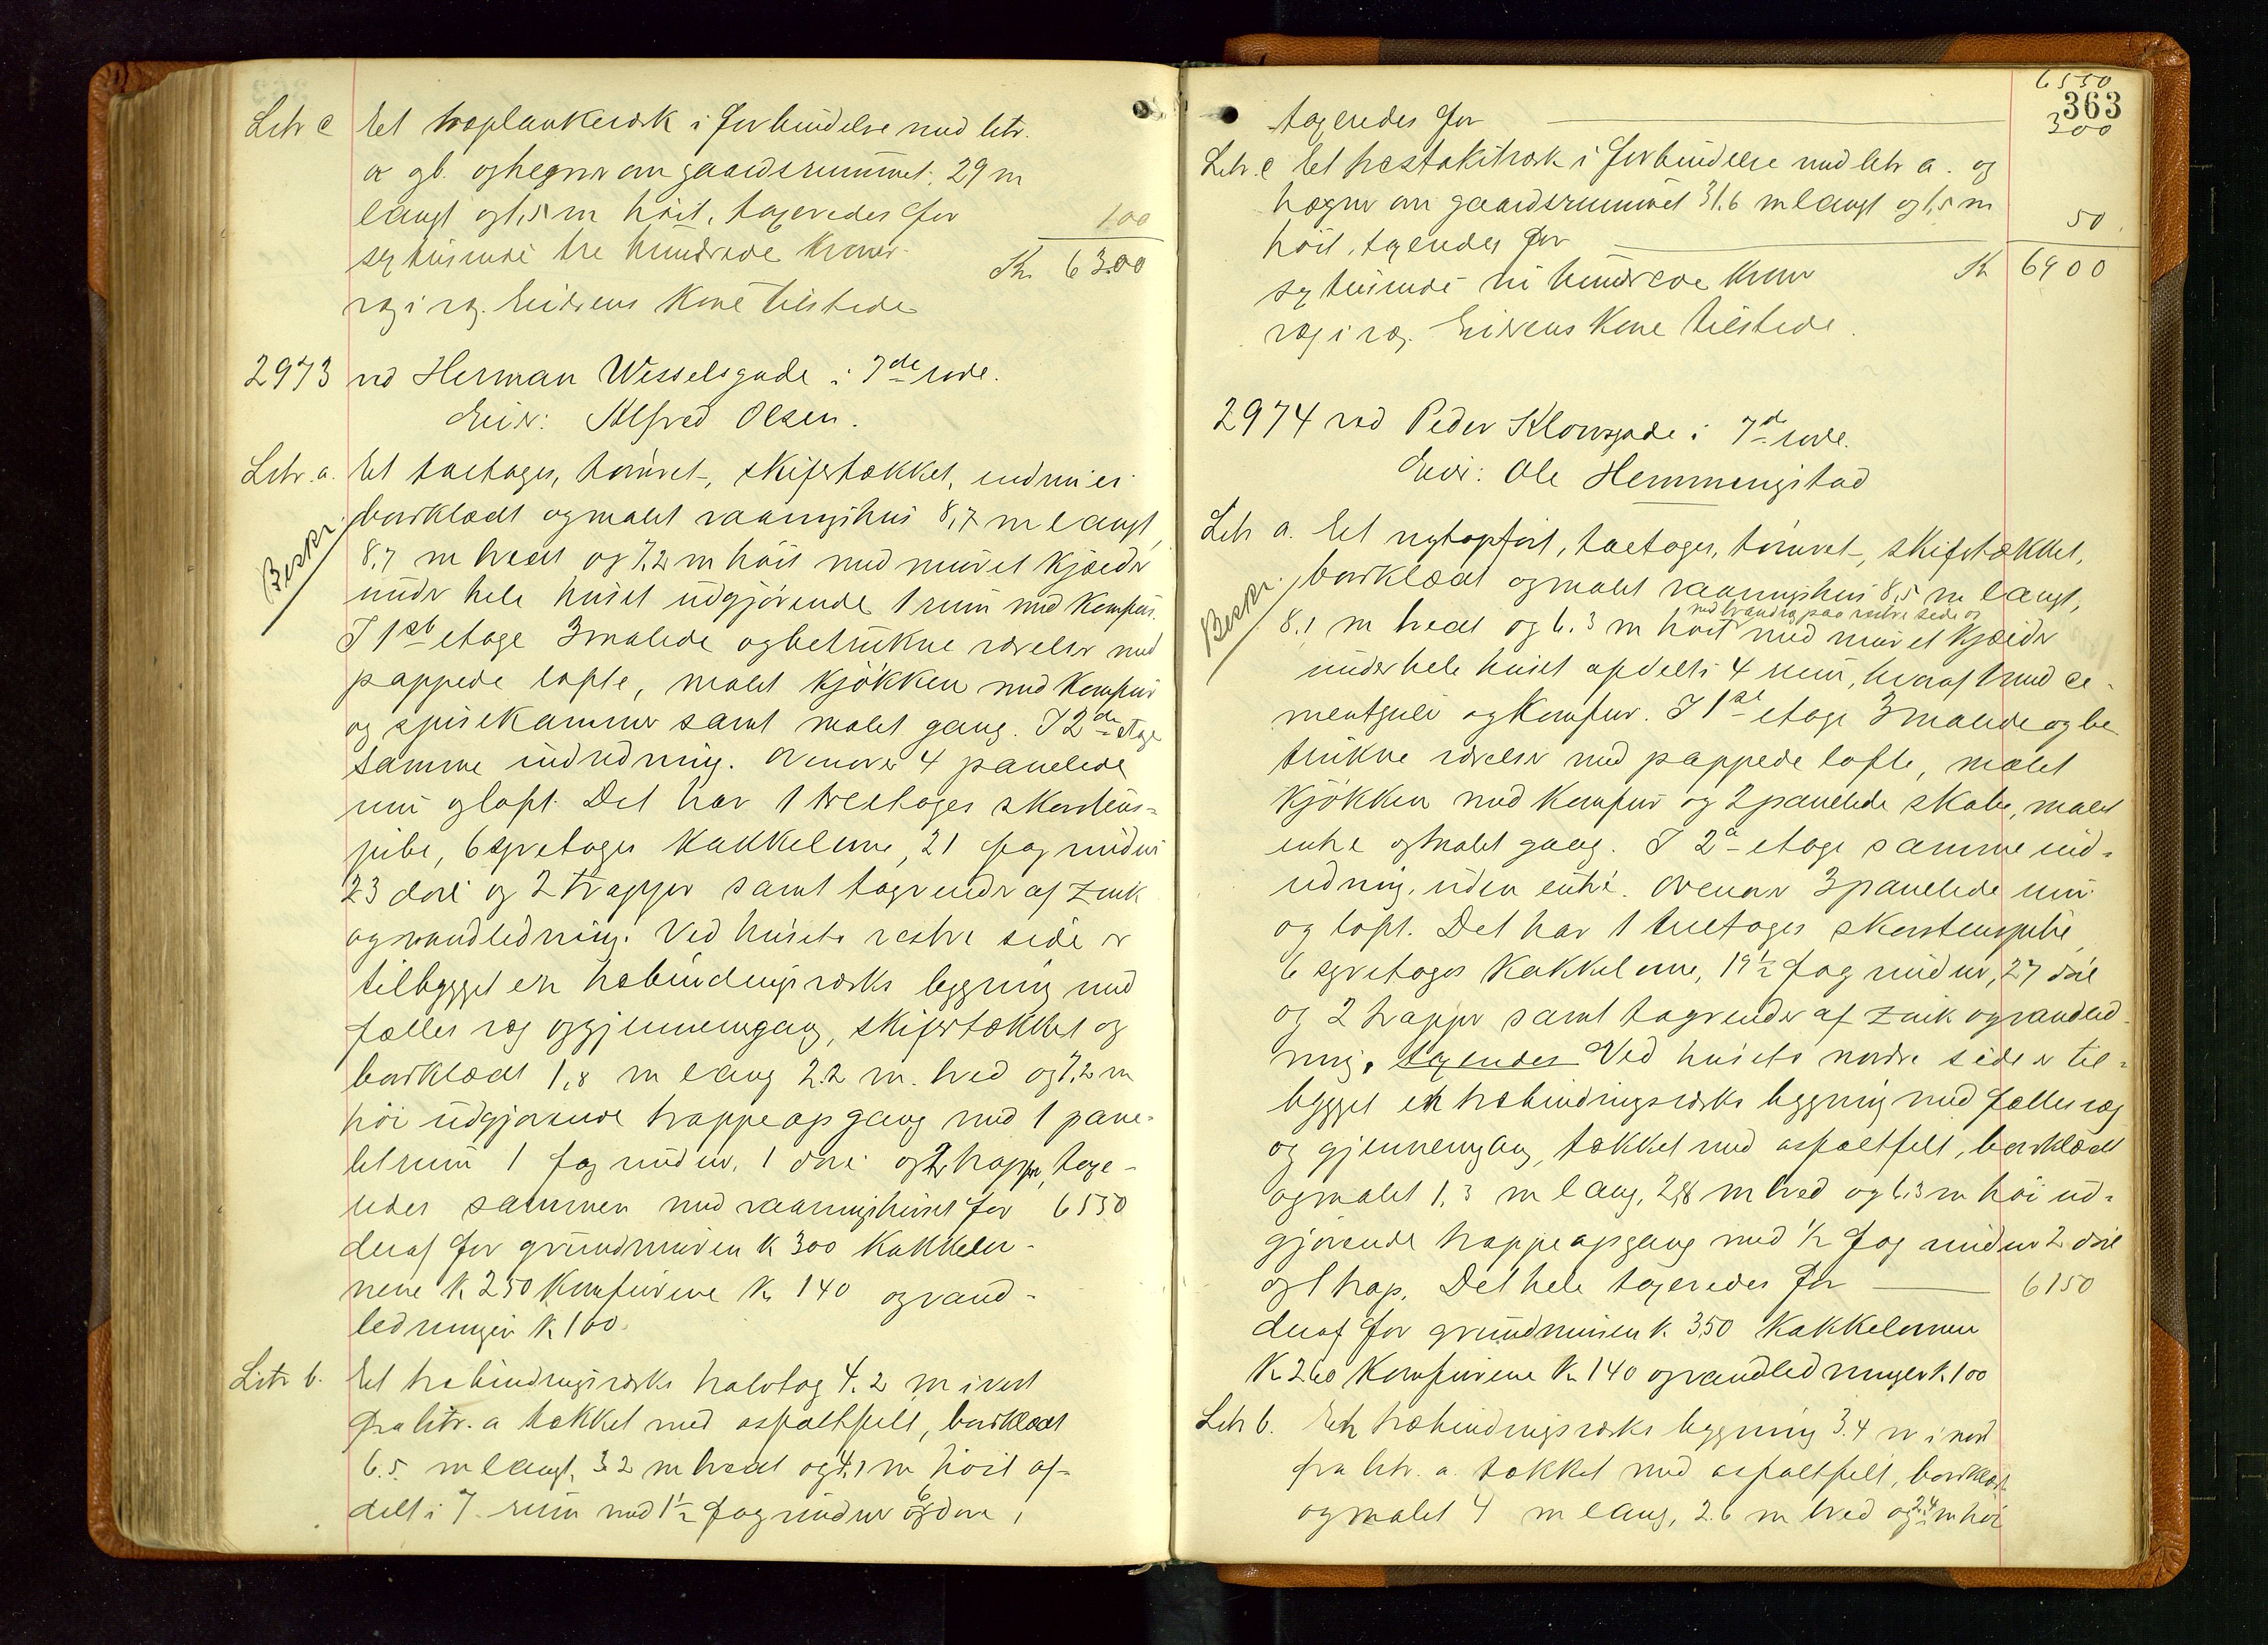 Litr c Et træplankeværk i forbindelse med litr.
a gb. og hegner om gaardsrummet, 29 m
langt og 1,5 m høit, taxeredes for 100
sex tusinde tre hundrede kroner. Kr. 6300
væg i væg. Eierens kone tilstede
2973 ved Herman Wesselsgade i 7de rode.
Eier: Alfred Olsen.
Litr. a. Et toetages, tømret, skifertækket, udvendig
Beskr.
bordklædt og malet vaaningshus 8,7 m langt,
8,7 m bredt og 7,2 m høit med muret kjælder
under hele huset udgjørende 1 rum med komfur.
I 1ste etage 3 malede og betrukne værelser med
pappede lofte, malet kjøkken med komfur
og spisekammer samt malet gang. I 2den etage
samme indredning. Ovenover 4 panelede
rum og loft. Det har 1 treetages skorstens-
pibe, 6 stk etages kakkelovne, 21 fag vinduer
23 døre og 2 trapper samt tagrender af zink
og vandledning. Ved husets vestre side er
tilbygget en træbindingsværks bygning med
fælles væg og gjennemgang, skifertækket og
bordklædt 1,8 m lang 2.2 m. bred og 7,2 m
høi udgjørende trappeopgang med 1 pane-
let rum 1 fag vinduer, 1 dør og 2 trapper, taxe-
redes sammen med vaaningshuset for 6550
deraf for grundmuren K 300 kakkelov-
nene K 250 komfurene K. 140 og vand-
ledningen K. 100.
Litr b. Et træbindingsværks halvtag 4.2 m i vest
fra litr. a tækket med asfaltfilt, bordklædt
6.5. m langt, 3.2 m bredt og 4,1 m høit af-
delt i 7 rum med 1 1/2 fag vinduer og 6 døre,
6550
363
taxeredes for 300
Litr. c Et træstakitværk i forbindelse med litr a. og
hegner om gaardsrummet 31.6 m langt og 1,5 m
høit, taxeredes for 50
sex tusinde ni hundrede kroner K 6900
væg i væg. Eierens kone tilstede.
2974 ved Peder Klowsgade i 7de rode.
Eier: Ole Hemmingstad
Litr a. Et nyt opført, toetages, tømret, skifertækket,
Beskr.
bordklædt og malet vaaningshus 8,5 m langt,
med brandvæg paa vestre side og
8.1 m bredt og 6.3 m høit med muret kjælder
under hele huset afdelt i 4 rum, hvoraf 1 med ce-
mentgulv og komfur. I 1ste etage 3 malede og be
trukne værelser med pappede lofte, malet
kjøkken med komfur og 2 panelede skabe, malet
entre og malet gang. I 2den etage samme ind-
redning, uden entré. Ovenover 3 panelede rum
og loft. Det har 1 treetages skorstenspibe,
6 stk etages kakkelovne, 19 1/2 fag vinduer, 27 døre
og 2 trapper samt tagrender af zink og vandled-
ning. taxeredes Ved husets nordre side er til-
bygget en træbindingsværks bygning med fælles væg
og gjennemgang, tækket med asfaltfilt, bordklædt
og malet 1,3 m lang, 2,8 m bred og 6.3 m høi ud-
gjørende trappeopgang med 1/2 fag vinduer 2 døre
og 1 trap. Det hele taxeredes for 6150
deraf for grundmuren K. 350 kakkelovnene
K. 260 komfurene K. 140 og vandledningen K. 100
Litr b. En træbindingsværks bygning 3.4 m i nord
fra litr. a. tækket med asfaltfilt, bordklædt
og malet 4 m lang, 2.6 m bred og 2.4 m høi